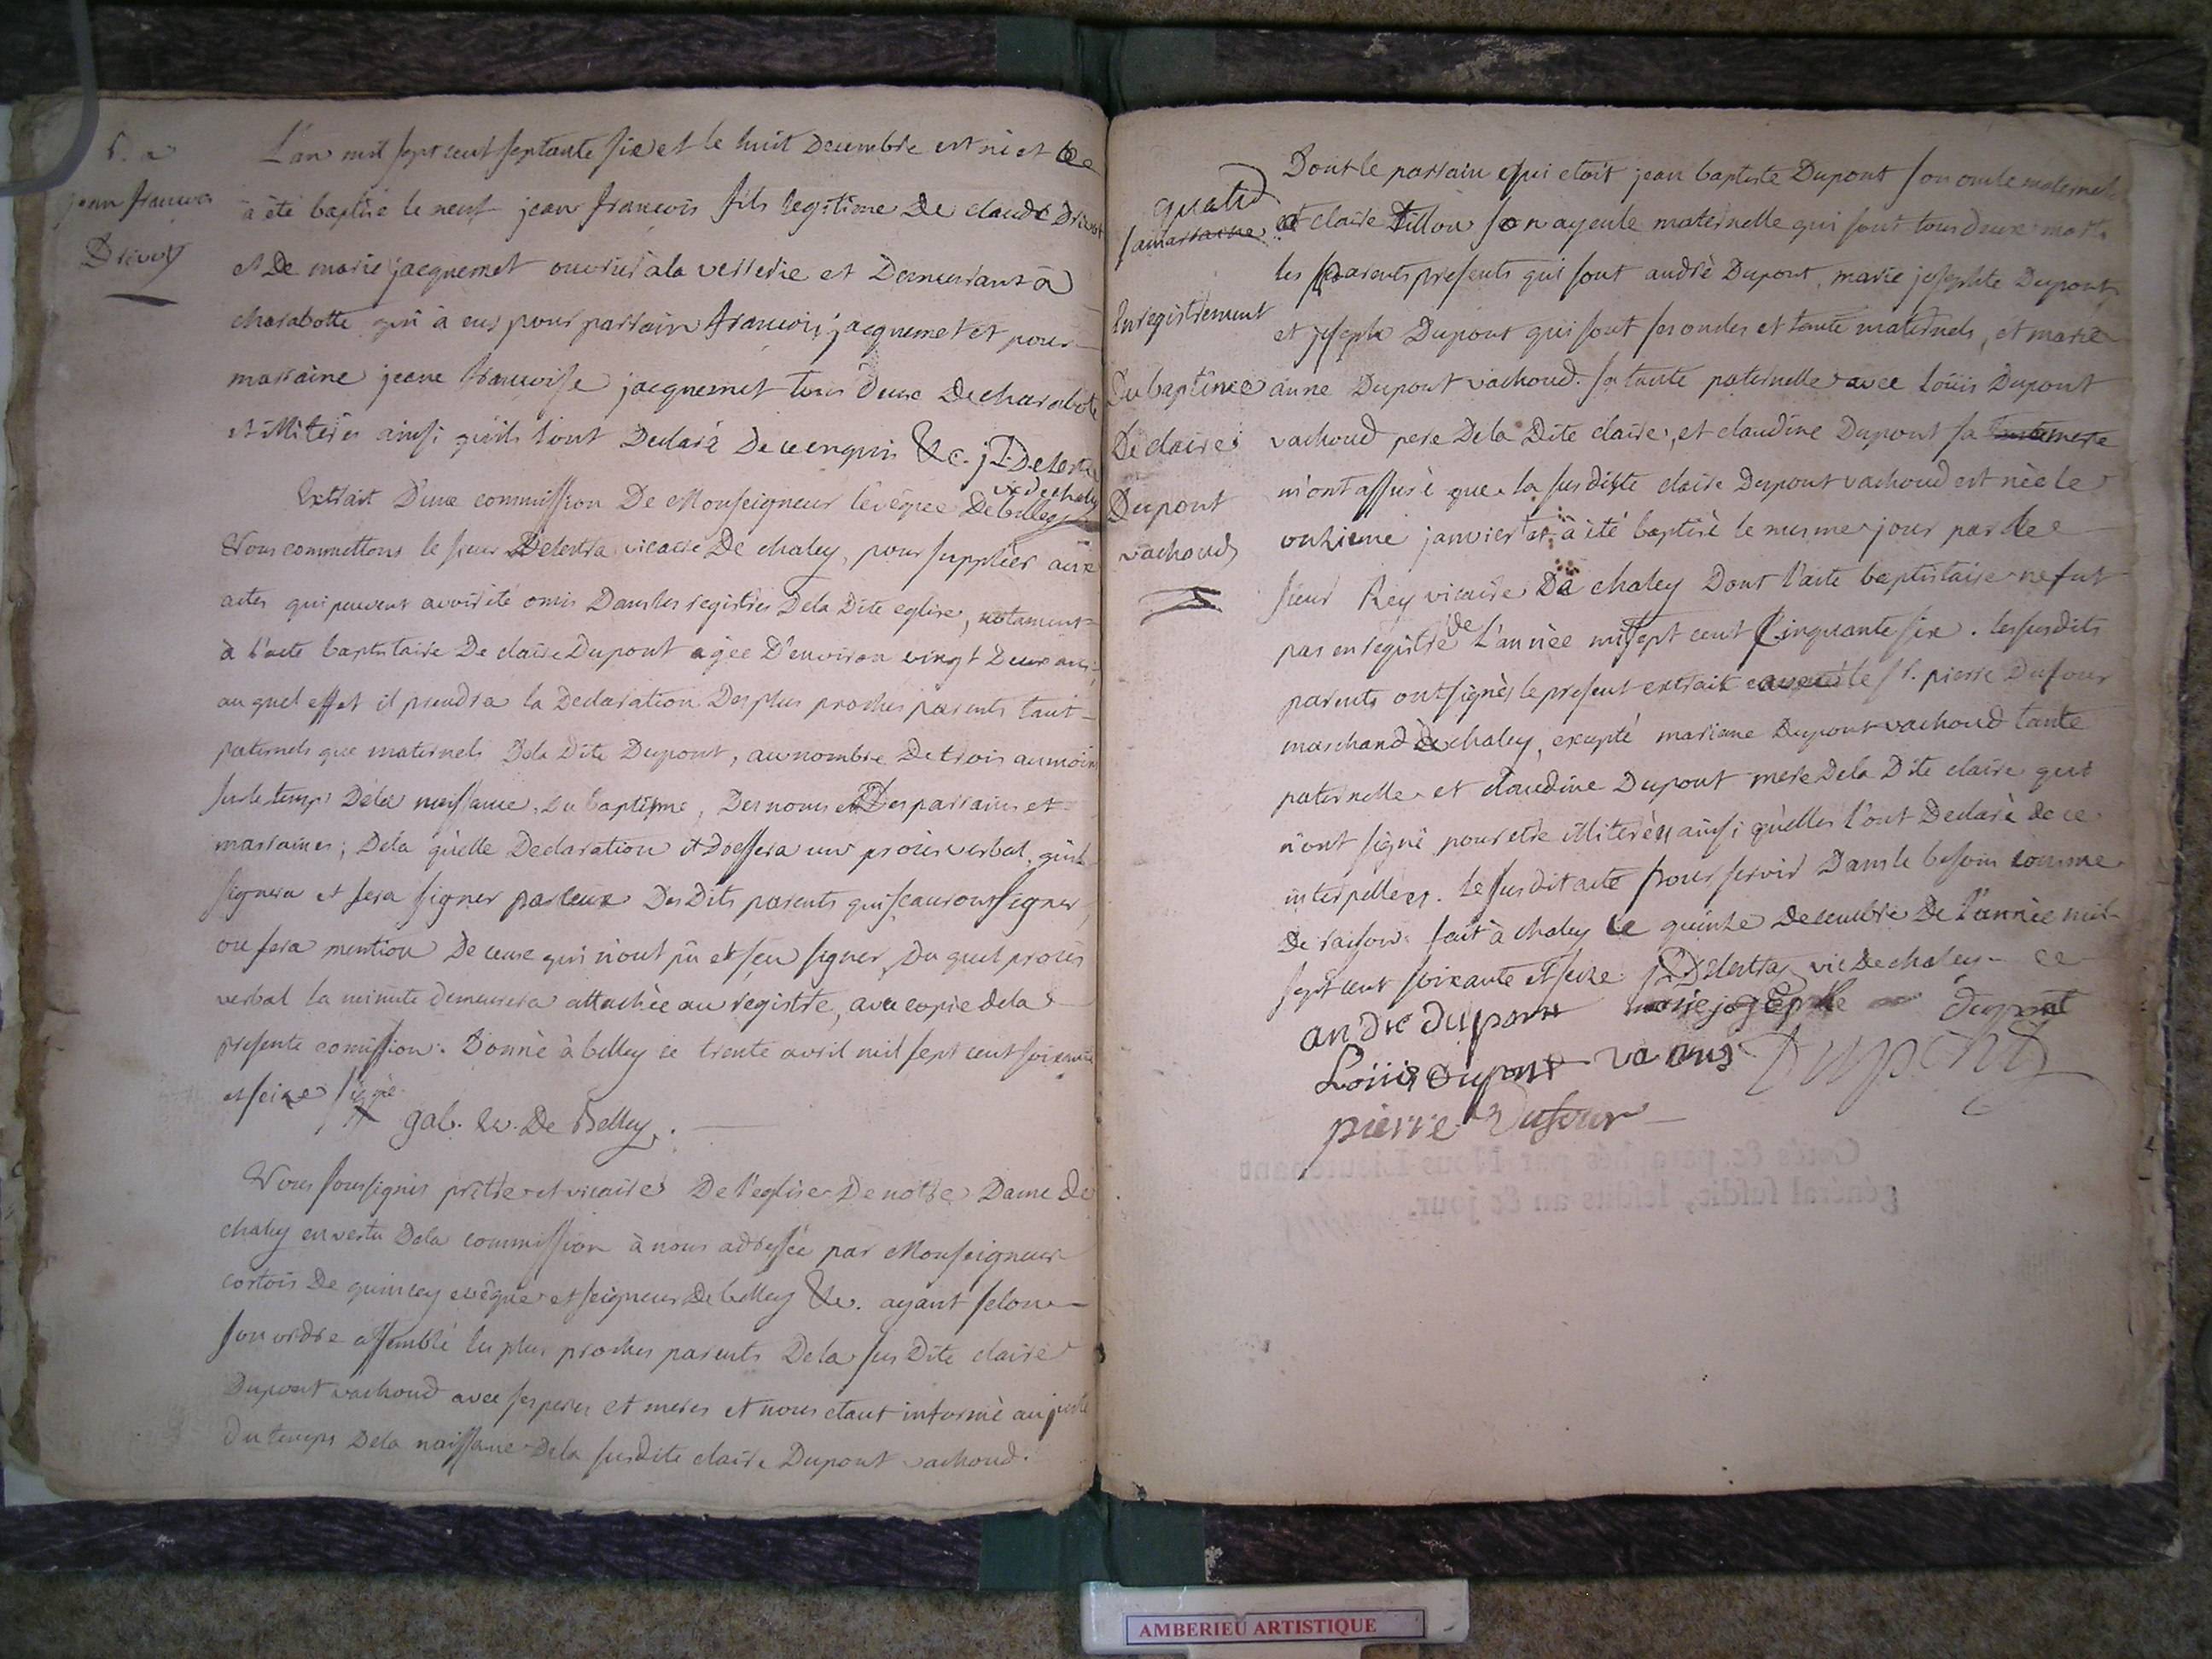 B. a
jean francois
Drevoy
L'an mil sept cent septante six et le huit Decembre est né et
à été baptisé le neuf jean francois fils legitime De claude
et De marie jacquemet ouvrier a la verrerie et Demeurant a
charabotte qui à eus pour parrain francois jacquemet et pour
marraine jeane francoise jacquemet tous deux De charabotte
et illiterés ainsi qu'ils l'ont Declaré De ce enquis &c. j D Delestra
vic de chaley
Extrait D'une commission De Monseigneur l'evêque De belley
Nous commettons le sieur Delestra vicaire De chaley, pour supplèer aux
actes qui peuvent avoir été omis Dans les registres Dela Dite eglise, notament
à l'acte baptistaire De claire Dupont agée D'environ vingt Deux ans;
au quel effet il prendra la Declaration Des plus proches parents tant
paternels que maternels Dela Dite Dupont, au nombre De trois au moins
sur le temps Dela naissance, Du baptême, Des noms et Des parrains et
marraines; Dela quelle Declaration il dressera un procès verbal, qu'il
signera et fera signer par ceux Des Dits parents qui scauront signer,
ou fera mention De ceux qui n'ont pû et sçu signer, Du quel procès
verbal la minute demeurera attachée au registre, avec copie dela
presente comission. Donné à belley ce trente avril mil sept cent soixante
et seize signé
gab. ev. De Belley.
Nous soussignés prêtre et vicaire De l'eglise De notre Dame de
chaley en vertu Dela commission à nous adressée par Monseigneur
cortois De quincey evêque et seigneur De belley &c. ayant selon
son ordre assemblé les plus proches parents Dela sus Dite claire
Dupont vachoud avec ses peres et meres et nous etant informé au juste
du temps Dela naissance Dela susdite claire Dupont vachoud.
quand
sa marraine
Enregistrement
Du baptême
De claire
Dupont
vachoud
Dont le parrain qui etoit jean baptiste Dupont son oncle maternel
et claire Tillou son ayeule maternelle qui sont tous deux morts
les parents presents qui sont andrè Dupont, marie josephte Dupont
et joseph Dupont qui sont ses oncles et tante maternels, et marie
anne Dupont vachoud. sa tante paternelle avec Loüis Dupont
vachoud pere Dela Dite claire, et claudine Dupont sa mere
m'ont assuré que la susdite claire Dupont vachoud est nèe le
onzieme janvier et à été baptisé le mesme jour par le
sieur Rey vicaire De chaley Dont l'acte baptistaire ne fut
pas enregistré de L'année mil sept cent Cinquante six. les susdits
parents ont signès le present extrait avec le sr. pierre Dufour
marchand à chaley, excepté marianne Dupont vachoud tante
paternelle et claudine Dupont mere Dela Dite claire qui
n'ont signé pour etre illiterès ainsi qu'elles l'ont Declarè de ce
interpellees. le susdit acte pour servir Dans le besoin comme
De raison. fait à chaley le quinze Decembre De l'année mil
sept cent soixante et seize j D Delestra vic De chaley ce
andré dupont marie josephte dupont
Loüis dupont vachoud Dupont
pierre Dufour
Cotés & paraphés par Nous Lieutenant
général susdit, lesdits an & jour.
AMBERIEU ARTISTIQUE